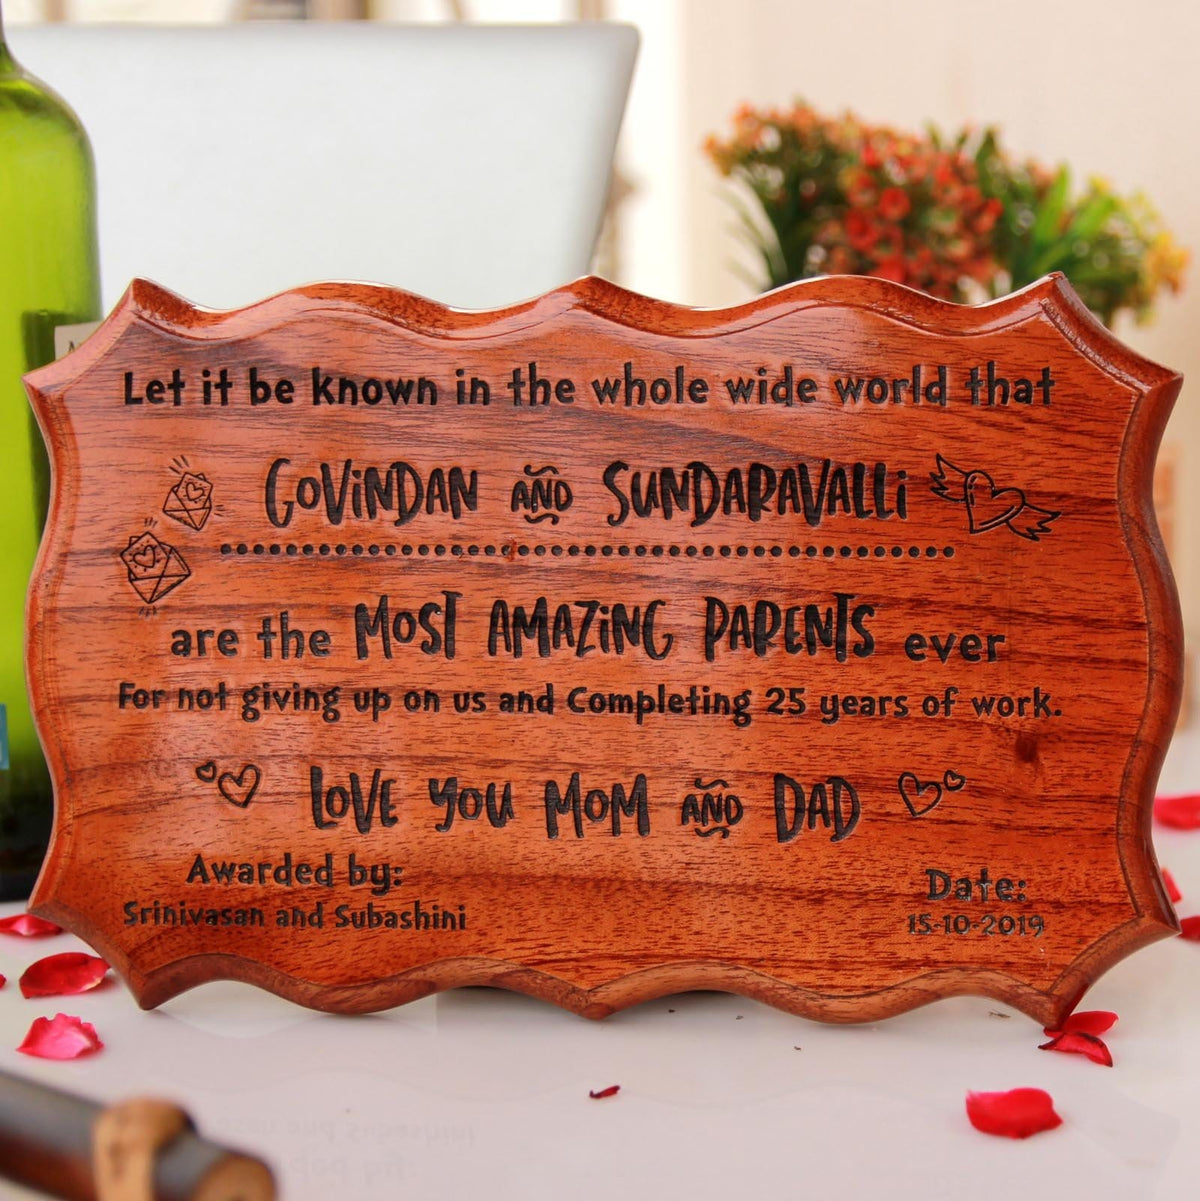 Let it be known in the whole wide world that
GOVINDAN AND SUNDARAVALLI
are the MOST AMAZING PARENTS ever
For not giving up on us and Completing 25 years of work.
LOVE YOU MOM AND DAD
Awarded by:
Srinivasan and Subashini
Date:
15-10-2019